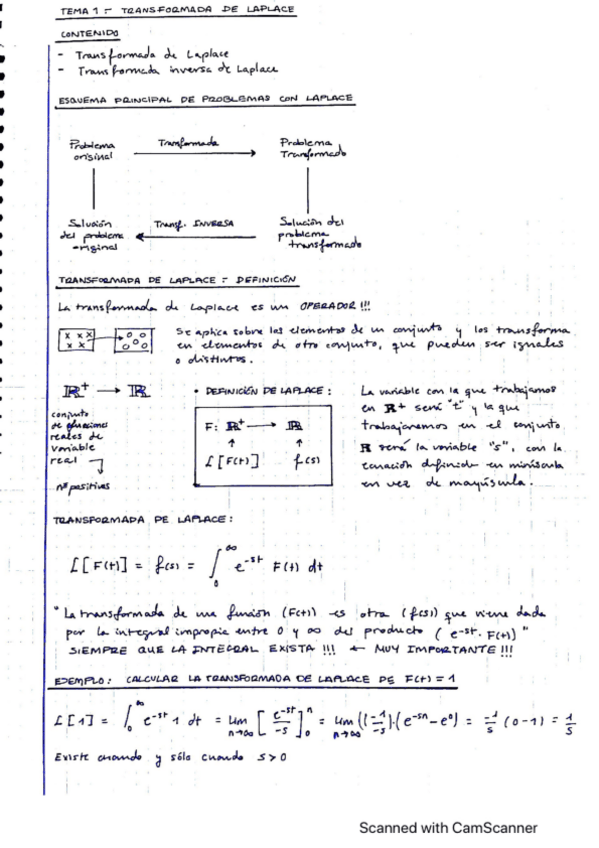 TEMA 1 :- TRANSFORMADA DE LAPLACE
CONTENIDO
- Transformada de Laplace
- Transformada inversa de Laplace
ESQUEMA PRINCIPAL DE PROBLEMAS CON LAPLACE
Problema original
Transformada
Problema Transformado
Solución del problema original
Transf. INVERSA
Solución del problema transformado
TRANSFORMADA DE LAPLACE :- DEFINICIÓN
La transformada de Laplace es un OPERADOR!!!
Se aplica sobre los elementos de un conjunto y los transforma
en elementos de otro conjunto, que pueden ser iguales
o distintos.
ℝ⁺ → ℝ
conjunto
de funciones
reales de
variable
real
nº positivas
• DEFINICIÓN DE LAPLACE :
F: ℝ⁺ → ℝ
↑ ↑
ℒ[F(t)] f(s)
La variable con la que trabajamos
en ℝ⁺ será "t" y la que
trabajaremos en el conjunto
ℝ será la variable "s", con la
ecuación definida en minúscula
en vez de mayúscula.
TRANSFORMADA DE LAPLACE :
ℒ[F(t)] = f(s) = ∫₀^∞ e^-st F(t) dt
"La transformada de una función (F(t)) es otra (f(s)) que viene dada
por la integral impropia entre 0 y ∞ del producto (e^-st · F(t))"
SIEMPRE QUE LA INTEGRAL EXISTA !!! ← MUY IMPORTANTE !!!
EJEMPLO : CALCULAR LA TRANSFORMADA DE LAPLACE DE F(t) = 1
ℒ[1] = ∫₀^∞ e^-st 1 dt = lim n→∞ [e^-st / -s]₀^n = lim n→∞ ((-1/-s)·(e^-sn - e^0) = -1/s (0-1) = 1/s
Existe cuando y sólo cuando s > 0
Scanned with CamScanner